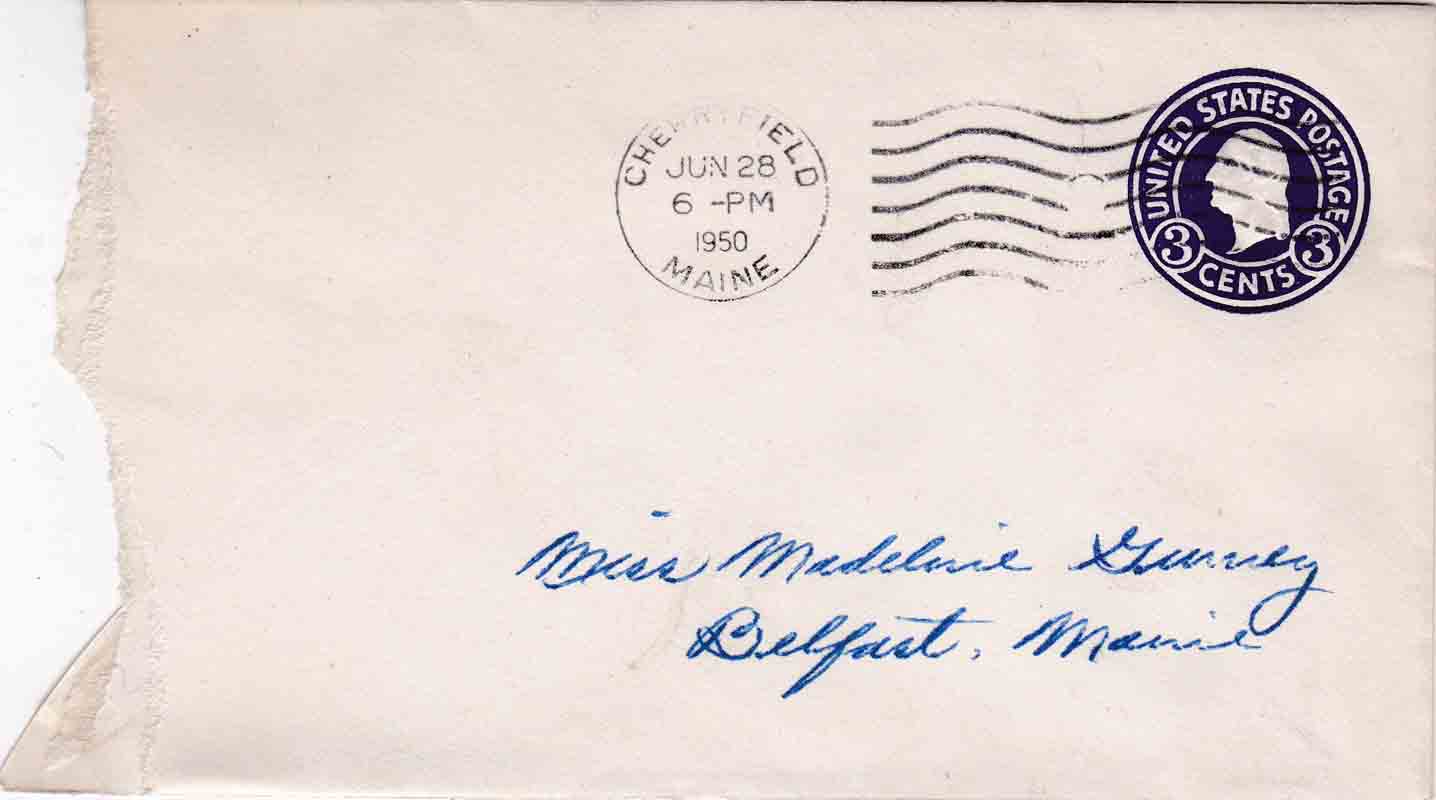 CHERRYFIELD
JUN 28
6 -PM
1950
MAINE
UNITED STATES POSTAGE
3 CENTS 3
Miss Madeline Gurney
Belfast, Maine